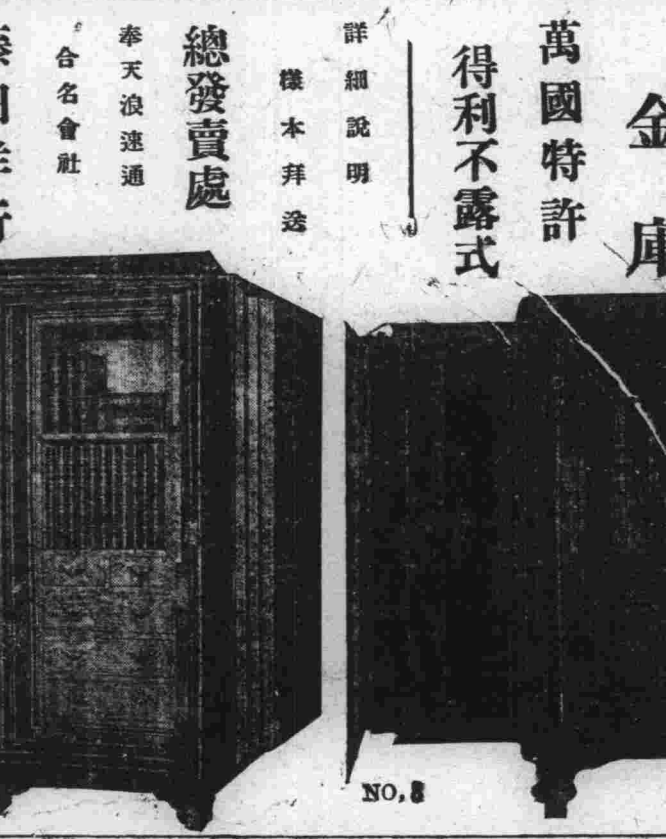 金庫
萬國特許
得利不露式
詳細説明
樣本拜送
總發賣處
奉天浪速通
合名會社
洋行
NO,3